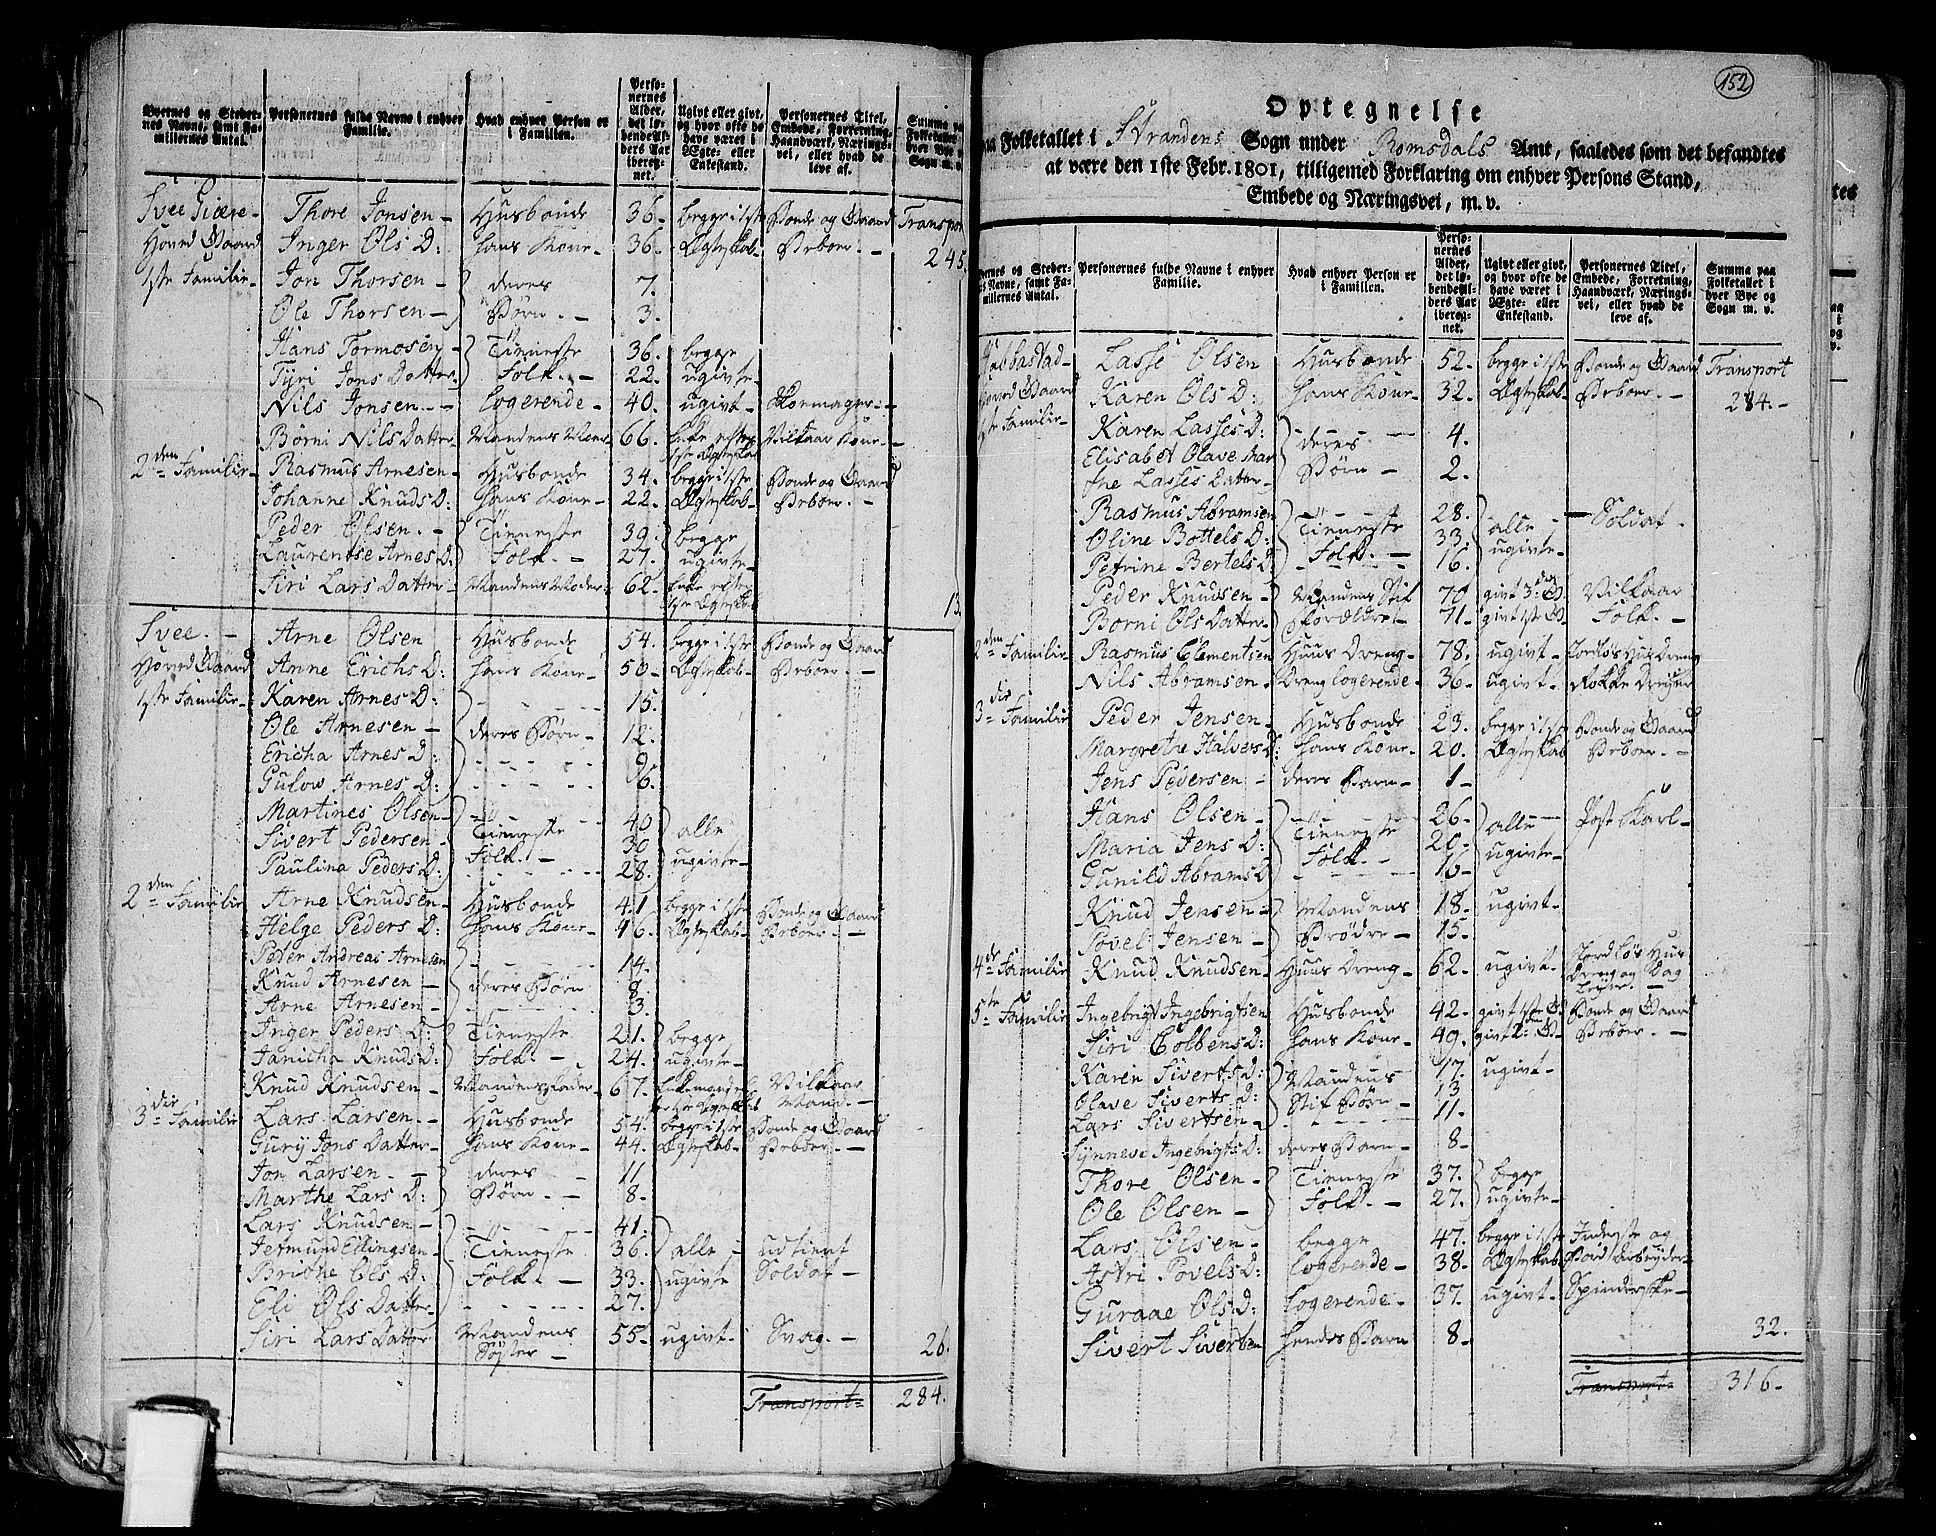 Byernes og Stedernes Navne, samt Familiernes Antal. | Personernes fulde Navne i enhver Familie. | Hvad enhver Person er i Familien. | Personernes Alder, det løbende Alders Aar iberegnet. | Ugivt eller givt, og hvor ofte de have været i Ægte- eller Enkestand. | Personernes Titel, Embede, Forretning, Haandværk, Næringsvei, eller hvad de leve af. | Summa paa Folketallet i hver Bye og Sogn m. v.
Svee Giære- | Thore Jonsen- | Husbonde | 36. | begge i 1ste | Bonde og Gaard | Transport
Hoved Gaard | Inger Ols D: | hans Kone- | 36. | Ægteskab- | Beboer. - | 245.
1ste Familie- | Jon Thorsen- | deres | 7.
Ole Thorsen- | Børn. - | 3.
Hans Tormosen- | Tieneste | 36. | begge
Tyri Jons Datter- | Folk. - | 22. | ugivte-
Nils Jonsen- - | Logerende- | 40. | ugivt- | Skomager-
Børni Nils Datter- | Mandens Moder | 66. | Enke efter 1ste Ægteskab | Vilkaar Kone-
2den Familie- | Rasmus Arnesen- | Husbonde | 34. | begge i 1ste | Bonde og Gaard
Johanne Knuds D: | hans Kone- | 22. | Ægteskab- | Beboer. -
Peder Olsen. - | Tieneste | 39. | begge
Laurentse Arnes D: | Folk. - | 27. | ugivte-
Siri Lars Datter- | Mandens Moder: | 62. | Enke efter 1ste Ægteskab | 13.
Svee. - | Arne Olsen | Husbonde | 54. | begge i 1ste | Bonde og Gaard
Hoved Gaard | Anne Erichs D: | hans Kone- | 50. | Ægteskab- | Beboer. -
1ste Familie- | Karen Arnes D: | 15.
Ole Arnesen- | deres Børn- | 12.
Ericha Arnes D: | 9.
Gulow Arnes D: | 6.
Martines Olsen- | 40
Sivert Pedersen- | Tieneste | 30 | alle
Paulina Peders D: | Folk. - | 28. | ugivte-
2den Familie | Arne Knudsen- | Husbonde | 41 | begge i 1ste | Bonde og Gaard
Helge Peders D: | hans Kone- | 46. | Ægteskab- | Beboer. -
Peder Andreas Arnesen | 14.
Knud Arnesen- | deres Børn | 8.
Arne Arnesen- | 3.
Inger Peders D: | Tieneste | 21. | begge
Janicha Knuds D: | Folk. - | 24. | ugivte-
Knud Knudsen- | Mandens Fader- | 67. | Enkemand | Vilkaar Mand. -
3die Familie | Lars Larsen. - | Husbonde | 54. | begge i 1ste | Bonde og Gaard
Gury Jons Datter- | hans Kone- | 44. | Ægteskab- | Beboer. -
Jon Larsen. - | deres | 11
Marthe Lars D: | Børn. - | 8.
Lars Knudsen- | 41.
Jermund Ellingsen- | Tieneste | 36. | alle - | udtient
Brithe Ols D: | Folk. - | 33. | ugivte | Soldat-
Eli Ols Datter- | 27.
Siri Lars Datter | Mandens Søster - | 55. | ugivt. | Svag. - | 26.
Transport- | 284.
152
Optegnelse
paa Folketallet i Strandens Sogn under Romsdals Amt, saaledes som det befandtes
at være den 1ste Febr. 1801, tilligemed Forklaring om enhver Persons Stand,
Embede og Næringsvei, m. v.
Byernes og Stedernes Navne, samt Familiernes Antal. | Personernes fulde Navne i enhver Familie. | Hvad enhver Person er i Familien. | Personernes Alder, det løbende Alders Aar iberegnet. | Ugivt eller givt, og hvor ofte de have været i Ægte- eller Enkestand. | Personernes Titel, Embede, Forretning, Haandværk, Næringsvei, eller hvad de leve af. | Summa paa Folketallet i hver Bye og Sogn m. v.
Habbastad- | Lasse Olsen | Husbonde | 52. | begge i 1ste | Bonde og Gaard | Transport
Hoved Gaard | Karen Ols D: | hans Kone- | 32. | Ægteskab- | Beboer. - | 284.-
1ste Familie- | Karen Lasses D: | deres | 4.
Elisabet Olave Marthe Lasses Datter- | Børn - | 2.
Rasmus Abramsen | 28. | Soldat.
Oline Bottels D: | Tieneste | 33. | alle -
Petrine Bertels D | Folk. - | 16. | ugivte-
Peder Knudsen- | Mandens Stif | 70 | givt 3die G. | Vilkaar
Borni Ols Datter- | Forældre | 71. | givt 1ste G | Folk. -
2den Familie- | Rasmus Clementsen | Huus Dreng- | 78. | ugivt- | Jordløs Huus Dreng
Nils Abramsen- | Dreng Logerende- | 36. | ugivt- | Rokke Dreyer
3die Familie | Peder Jensen- | Husbonde | 23. | begge i 1ste | Bonde og Gaard
Margrethe Halvers D: | hans Kone- | 20. | Ægteskab | Beboer. -
Jens Pedersen - | deres Barn- | 1-
Hans Olsen- | 26. | Post Karl-
Maria Jens D: | Tieneste | 20. | alle-
Gunild Abrams D | Folk. - | 16- | ugivte-
Knud Jensen- | Mandens | 18. | ugivt-
Povel Jensen- | Brødre- | 15.
4de Familie | Knud Knudsen- | Huus Dreng- | 62. | ugivt- | Jordløs Huus Dreng og Dag Leyer. -
5te Familie | Ingebrigt Ingebrigtsen | Husbonde | 42. | givt 1ste G | Bonde og Gaard
Siri Colbens D: | hans Kone- | 49. | givt 2: G- | Beboer. -
Karen Siverts D: | Mandens | 17. | ugivt-
Olave Siverts D: | Stif Børn- | 13
Lars Sivertsen- | 11.
Synneve Ingebrigts D: | deres Barn- | 8-
Thore Olsen- | Tieneste | 37. | begge
Ole Olsen - | Folk. - | 27. | ugivte-
Lars Olsen- | begge | 47. | begge i 1ste | Inderste og
Astri Povels D: | Logerende- | 38. | Ægteskab- | Jord Arbeyder-
Guraae Ols D: | Logerende- | 37. | ugivt- | Spinderske-
Sivert Siversen | hendes Barn | 8- | 32.
Transport- | 316-